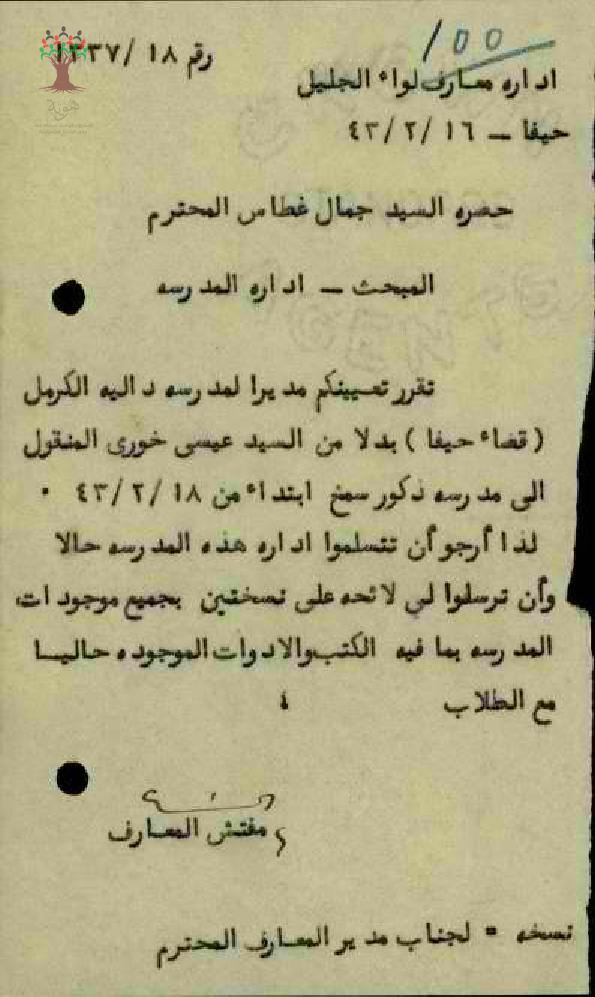 100
رقم ١٨ /١٣٣٧
اداره معارف لواء الجليل
حيفا — ١٦ /٢ /٤٣
حضره السيد جمال غطاس المحترم
المبحث — اداره المدرسه
تقرر تعيينكم مديرا لمدرسه داليه الكرمل
(قضاء حيفا) بدلا من السيد عيسى خورى المنقول
الى مدرسه ذكور سمخ ابتداء من ١٨ /٢ /٤٣ ٠
لذا أرجو أن تتسلموا اداره هذه المدرسه حالا
وأن ترسلوا لي لائحه على نسختين بجميع موجودات
المدرسه بما فيه الكتب والادوات الموجوده حاليا
مع الطلاب
مفتش المعارف
نسخه = لجناب مدير المعارف المحترم
هوية